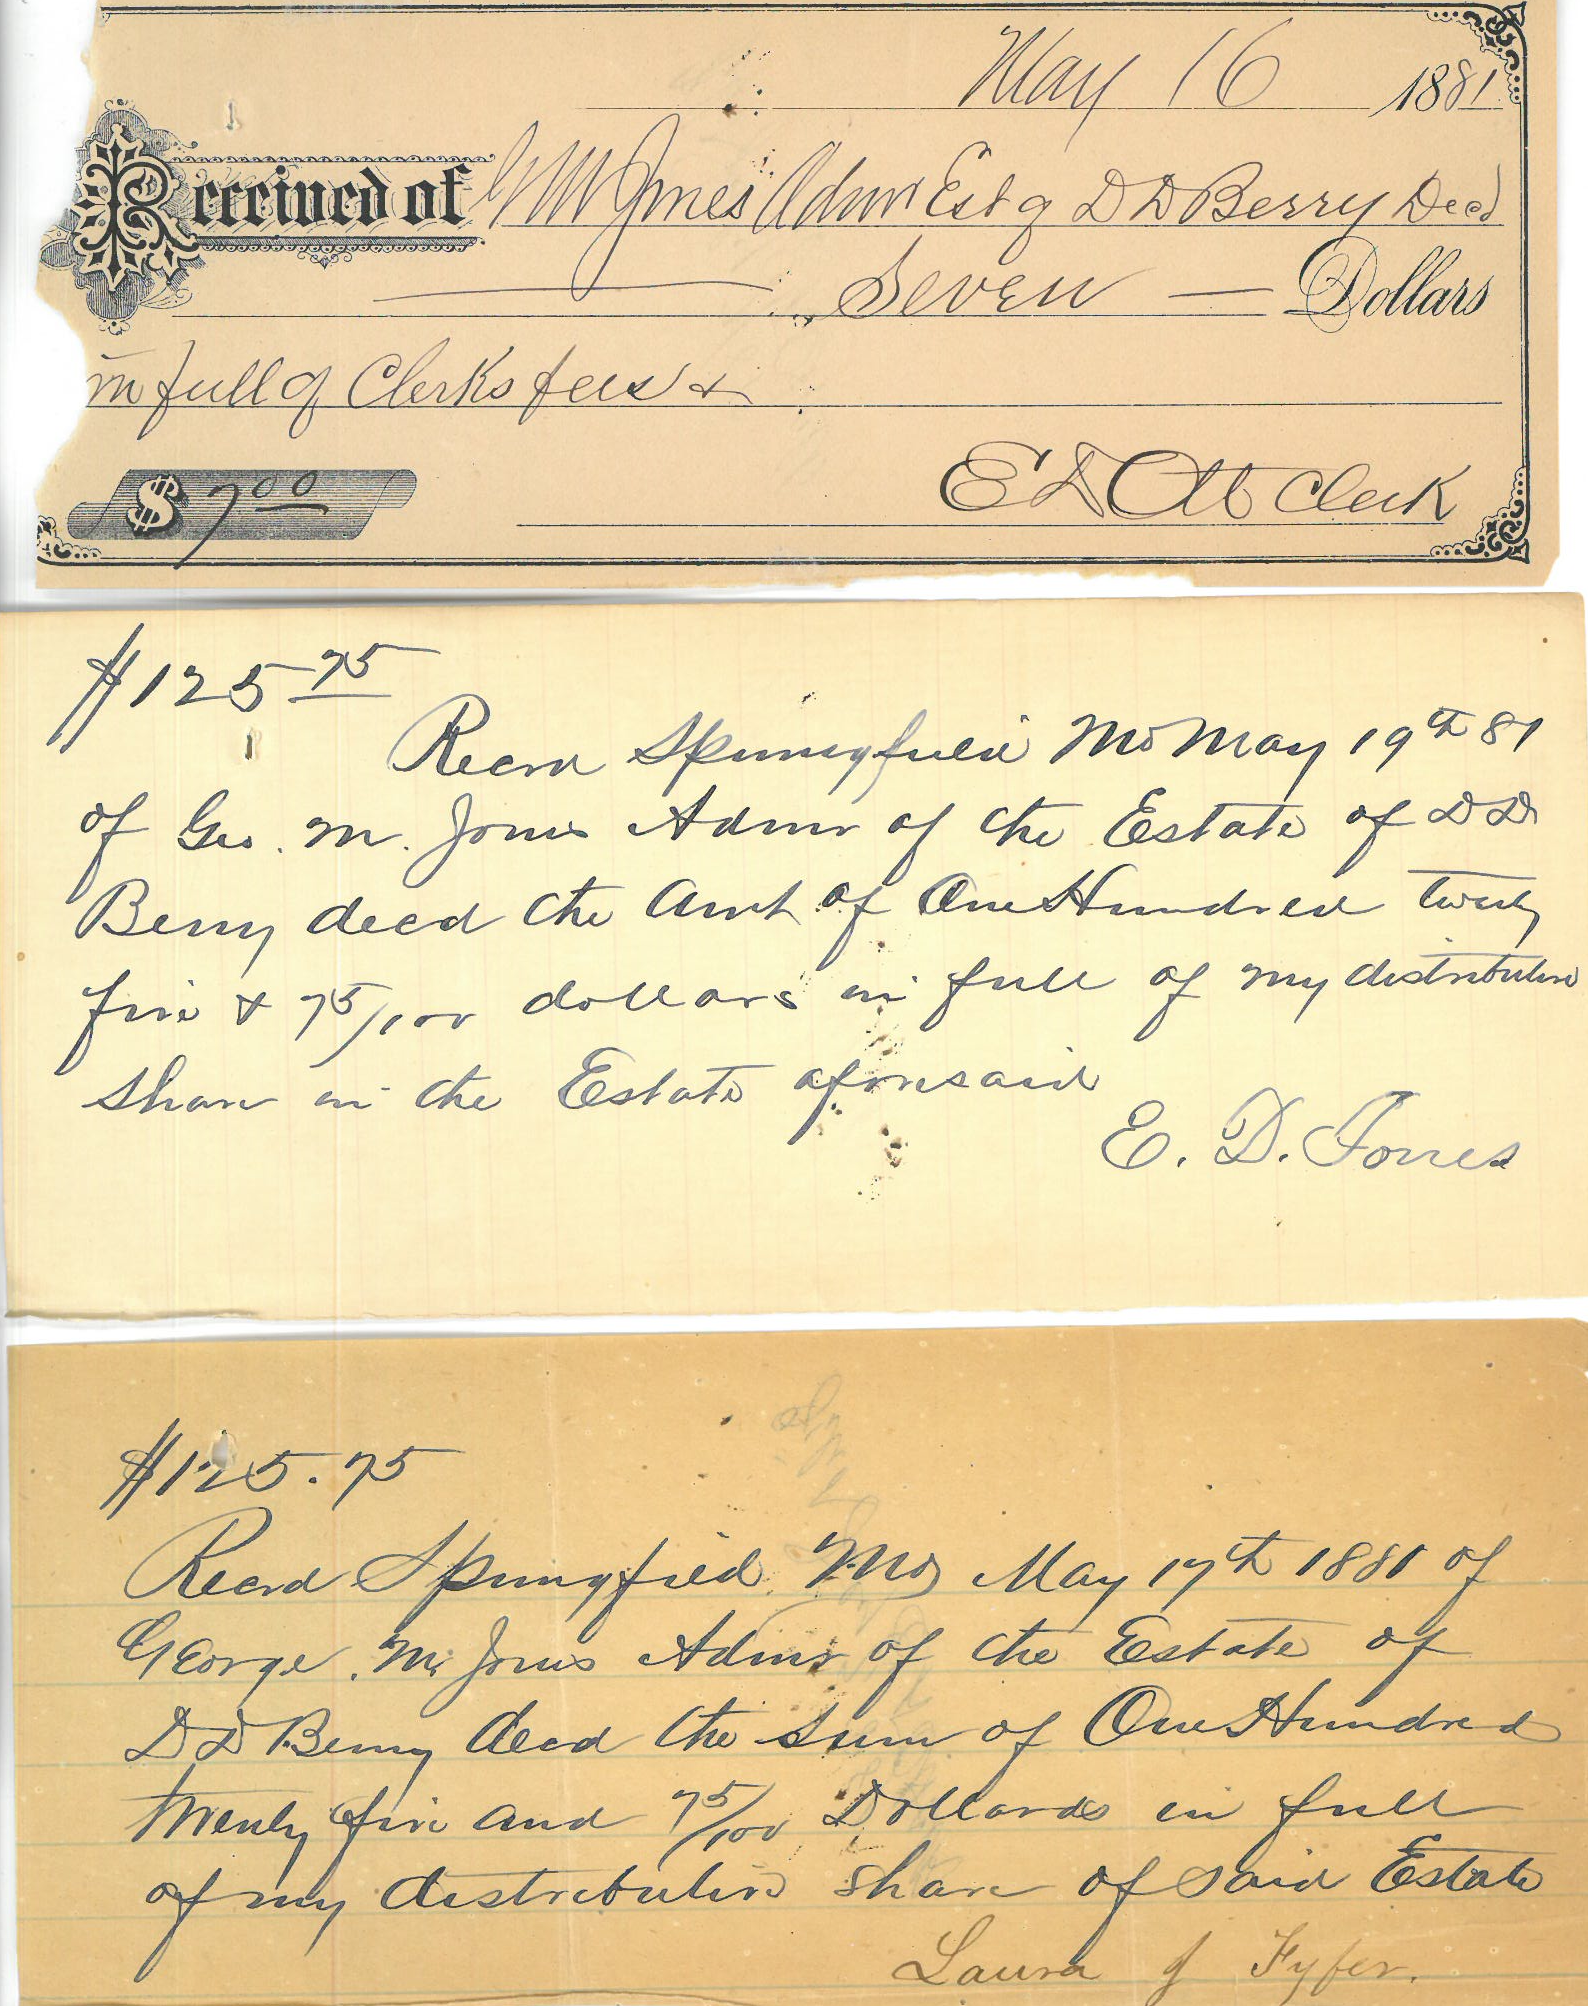 May 16 1881
Received of G M Jones Admr Est of D D Berry Decd
Seven Dollars
in full of Clerks fees &
$ 7 00 E D Ott Clerk
$125 75
Recd Springfield Mo May 19th 81
of Geo. M. Jones Admr of the Estate of D D
Berry decd the Amt of One Hundred twenty
five & 75/100 dollars in full of my distributive
share in the Estate aforesaid
E. D. Torres
$125.75
Recd Springfield Mo May 17th 1881 of
George M. Jones Admr of the Estate of
D D Berry decd the sum of One Hundred
Twenty five and 75/100 Dollards in full
of my distributive share of said Estate
Laura J Fyfer.